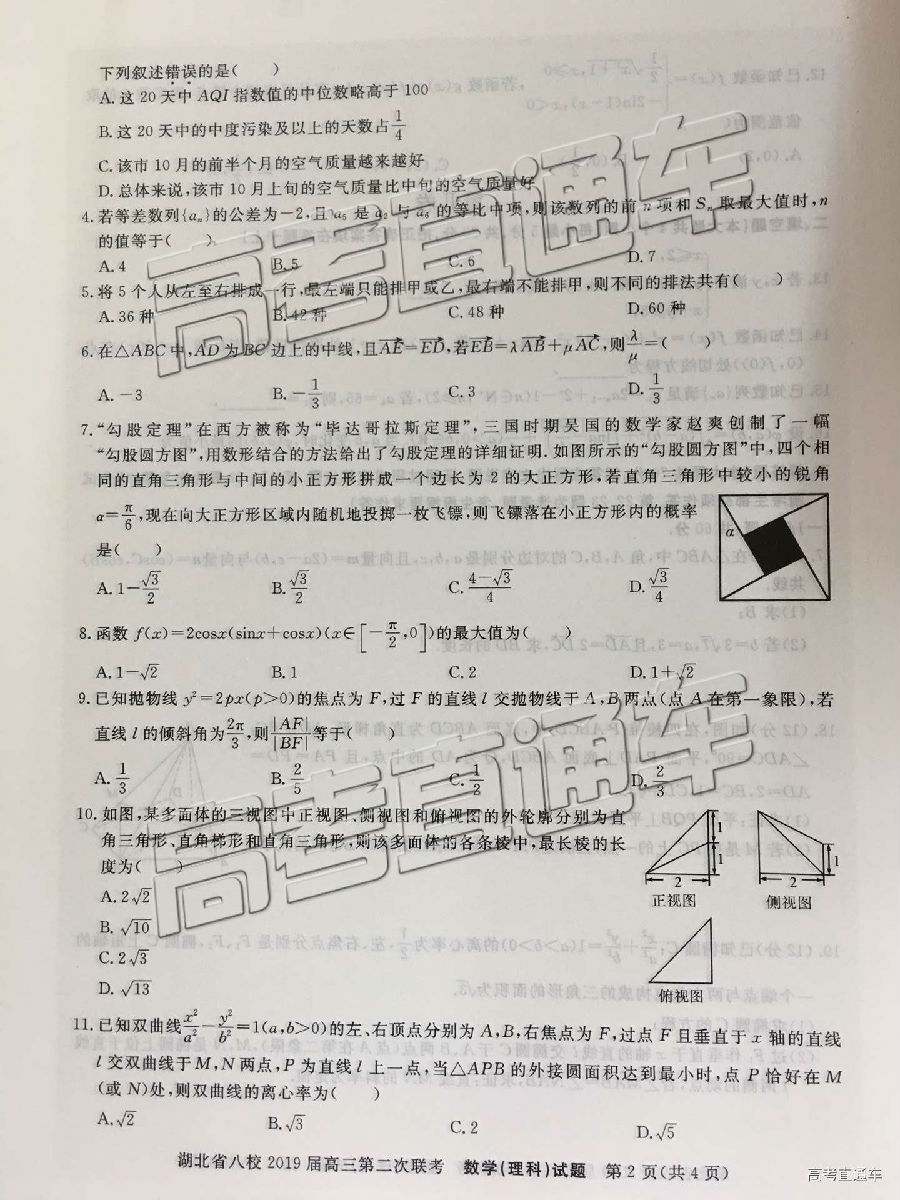 下列叙述错误的是(　　)
A. 这 20 天中 AQI 指数值的中位数略高于 100
B. 这 20 天中的中度污染及以上的天数占1/4
C. 该市 10 月的前半个月的空气质量越来越好
D. 总体来说,该市 10 月上旬的空气质量比中旬的空气质量好
4. 若等差数列{aₙ}的公差为−2,且 a₅ 是 a₂ 与 a₆ 的等比中项,则该数列的前 n 项和 Sₙ 取最大值时,n
的值等于(　　)
A. 4　B. 5　C. 6　D. 7
5. 将 5 个人从左至右排成一行,最左端只能排甲或乙,最右端不能排甲,则不同的排法共有(　　)
A. 36 种　B. 42 种　C. 48 种　D. 60 种
6. 在△ABC 中,AD 为 BC 边上的中线,且AE→=ED→,若EB→=λAB→+μAC→,则λ/μ=(　　)
A. −3　B. −1/3　C. 3　D. 1/3
7. “勾股定理”在西方被称为“毕达哥拉斯定理”,三国时期吴国的数学家赵爽创制了一幅
“勾股圆方图”,用数形结合的方法给出了勾股定理的详细证明. 如图所示的“勾股圆方图”中,四个相
同的直角三角形与中间的小正方形拼成一个边长为 2 的大正方形,若直角三角形中较小的锐角
α=π/6,现在向大正方形区域内随机地投掷一枚飞镖,则飞镖落在小正方形内的概率
α
是(　　)
A. 1−√3/2　B. √3/2　C. (4−√3)/4　D. √3/4
8. 函数 f(x)=2cosx(sinx+cosx)(x∈[−π/2,0])的最大值为(　　)
A. 1−√2　B. 1　C. 2　D. 1+√2
9. 已知抛物线 y²=2px(p>0)的焦点为 F,过 F 的直线 l 交抛物线于 A,B两点(点 A 在第一象限),若
直线 l 的倾斜角为2π/3,则|AF|/|BF|等于(　　)
A. 1/3　B. 2/5　C. 1/2　D. 2/3
10. 如图,某多面体的三视图中正视图、侧视图和俯视图的外轮廓分别为直
角三角形、直角梯形和直角三角形,则该多面体的各条棱中,最长棱的长
度为(　　)
A. 2√2
B. √10
C. 2√3
D. √13
1
1
2
正视图
1
2
侧视图
俯视图
11. 已知双曲线x²/a²−y²/b²=1(a,b>0)的左、右顶点分别为 A,B,右焦点为 F,过点 F 且垂直于 x 轴的直线
l 交双曲线于 M,N 两点,P 为直线 l 上一点,当△APB 的外接圆面积达到最小时,点 P 恰好在 M
(或 N)处,则双曲线的离心率为(　　)
A. √2　B. √3　C. 2　D. √5
湖北省八校 2019 届高三第二次联考　数学(理科)试题　第 2 页(共 4 页)
高考直通车
高考直通车
高考直通车